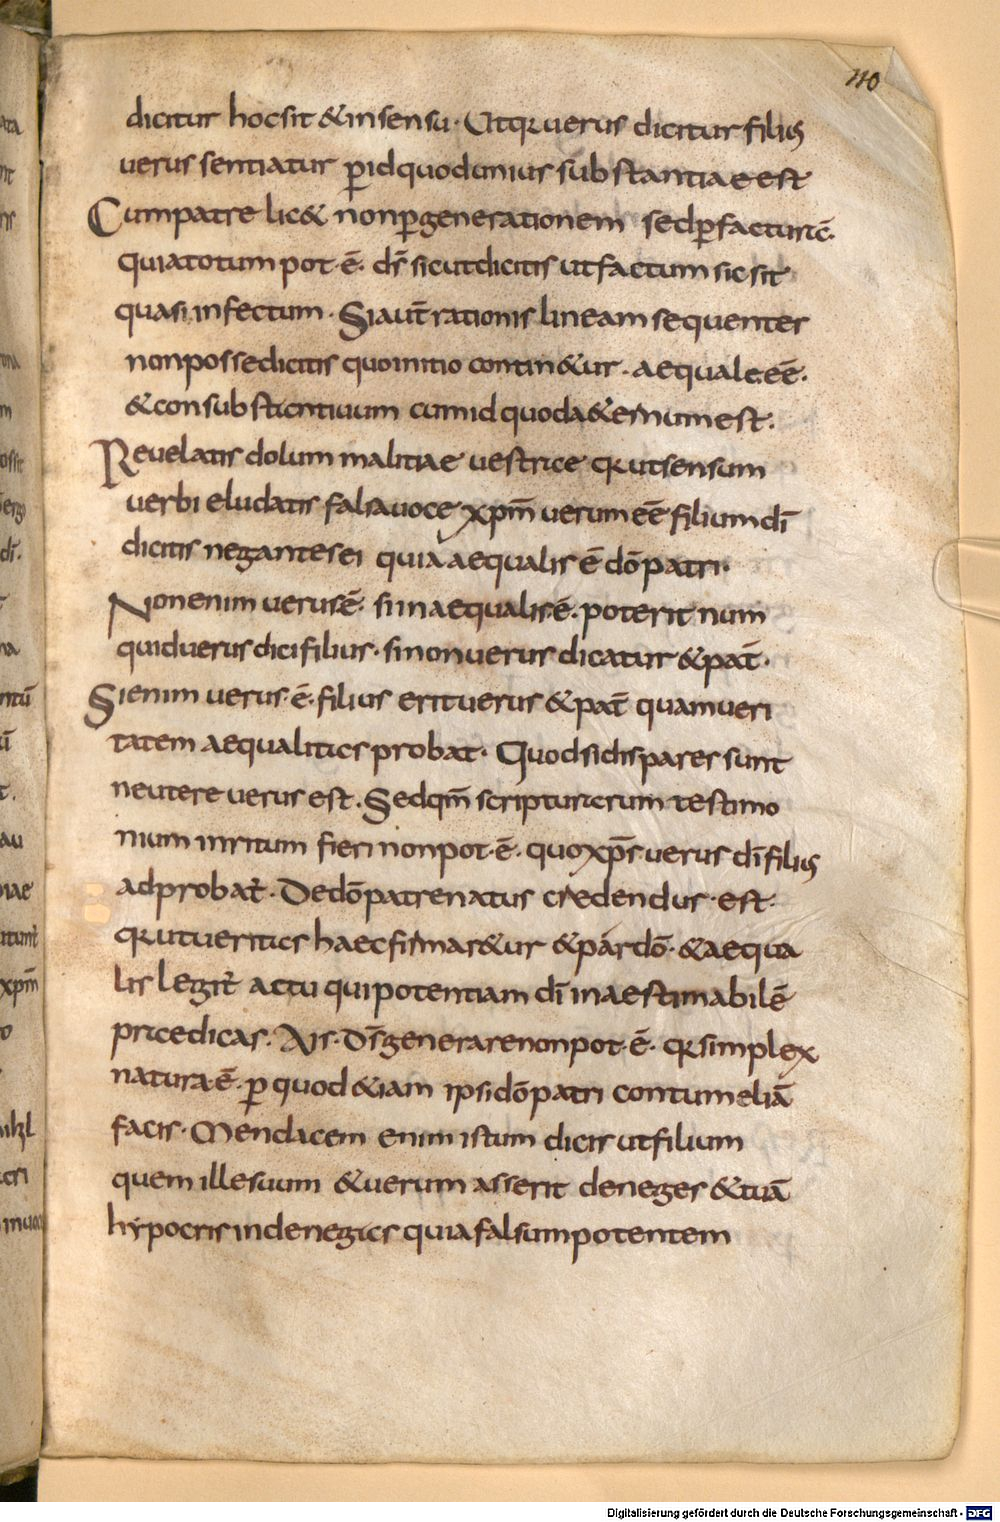 110
dicitur hocsit & insensu· Utqui uerus dicitur filius
uerus sentiatur p̄idquodunius substantiae est
Cumpatre lic& nonp̄generationem sedp̄facturā·
quiatotum pot·ē· ds̄ sicutdicitis utfactum sic sit
quasi infectum· Siaut̄ rationis lineam sequenter
nonpossedicitis quoinitio contin&ur· aequale·eē·
& consubstantiuum cumid quoda&ernumest·
Reuelatis dolum malitiae uestrae qui utsensum
uerbi eludatis falsauoce xpm̄ uerum eē filium dī
dicitis negantes ei quia aequalis ē dō patri·
Nonenim uerus·ē· si inaequalis·ē· poterit num
quiduerus dici filius· sinonuerus dicatur & pat̄·
Sienim uerus·ē· filius erit uerus & pat̄ quamueri
tatem aequalitas probat· Quodsidispares sunt
neutere uerus est· Sedqm̄ scripturarum testimo
nium inritum fieri nonpot·ē· quoxpr̄s uerus dī filius
adprobat̄· Dedō patre natus credendus·est·
qui utueritas haec firmar&ur & par dō· & aequa
lis legit̄ actu qui potentiam dī inaestimabilē
praedicas· Ais· Ds̄ generarenonpot·ē· qui simplex
natura·ē· p̄ quod &iam ipsi dō patri contumeliā
facis· Mendacem enim istum dicis utfilium
quem illesuum & uerum asserit deneges & tuā
hypocrisindenegas quiafalsum potentem
Digitalisierung gefördert durch die Deutsche Forschungsgemeinschaft - DFG